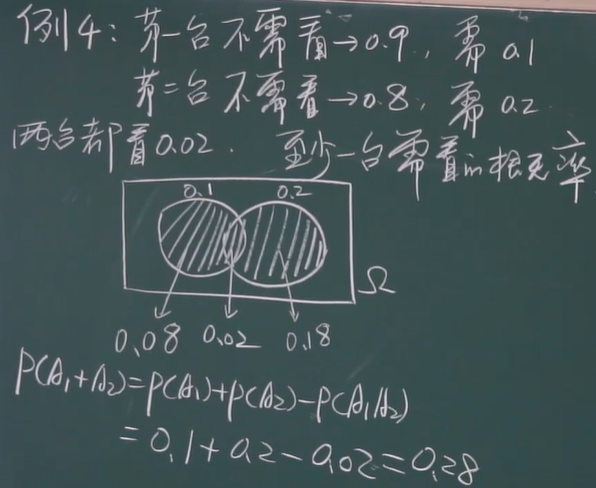 例4：第一台不需看→0.9，需0.1
第二台不需看→0.8，需0.2
两台都看0.02． 至少一台需看的概率
0.1 0.2
Ω
0.08 0.02 0.18
P(A₁+A₂)=P(A₁)+P(A₂)-P(A₁A₂)
=0.1+0.2-0.02=0.28